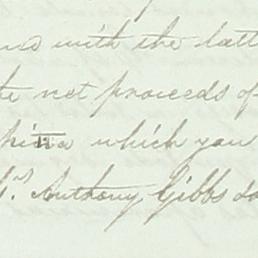 with the latt
net proceeds of
which you
Anthony Gibbs